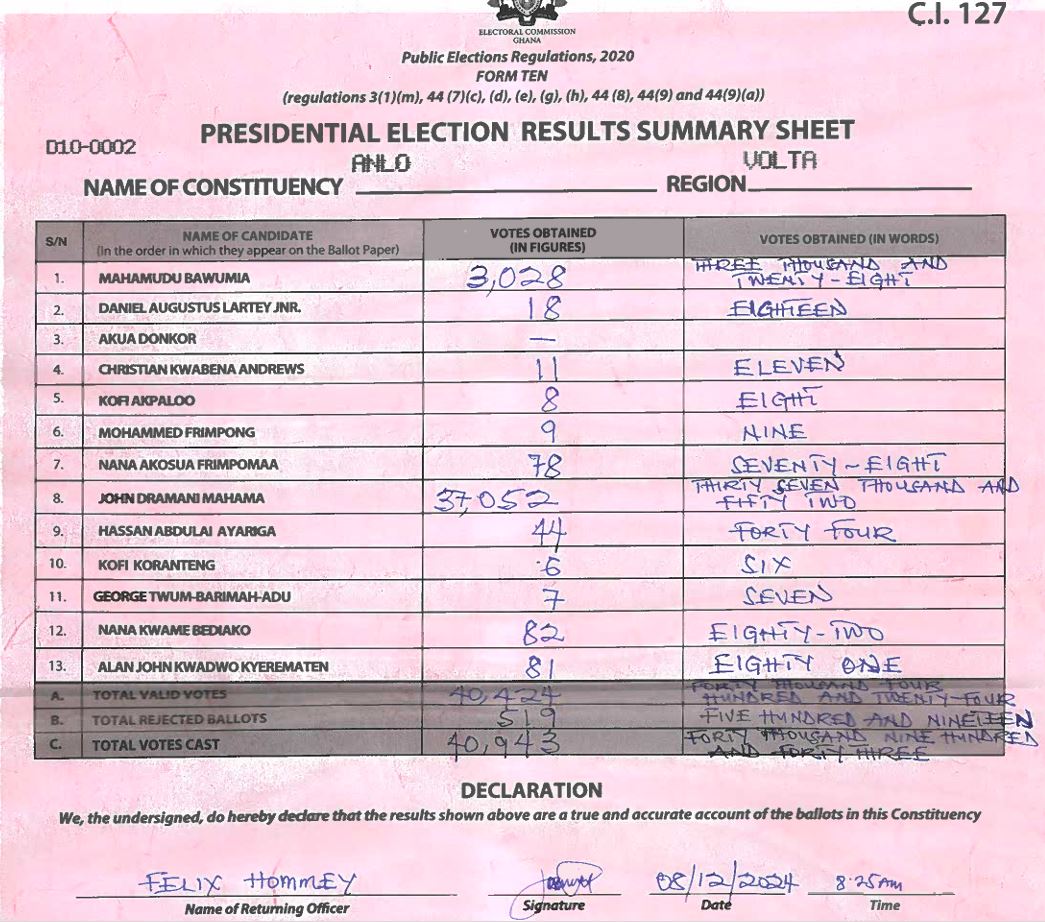 C.I. 127
ELECTORAL COMMISSION
GHANA
Public Elections Regulations, 2020
FORM TEN
(regulations 3(1)(m), 44 (7)(c), (d), (e), (g), (h), 44 (8), 44(9) and 44(9)(a))
PRESIDENTIAL ELECTION RESULTS SUMMARY SHEET
D10-0002
ANLO VOLTA
NAME OF CONSTITUENCY REGION
S/N NAME OF CANDIDATE (In the order in which they appear on the Ballot Paper) VOTES OBTAINED (IN FIGURES) VOTES OBTAINED (IN WORDS)
1. MAHAMUDU BAWUMIA 3,028 THREE THOUSAND AND TWENTY-EIGHT
2. DANIEL AUGUSTUS LARTEY JNR. 18 EIGHTEEN
3. AKUA DONKOR —
4. CHRISTIAN KWABENA ANDREWS 11 ELEVEN
5. KOFI AKPALOO 8 EIGHT
6. MOHAMMED FRIMPONG 9 NINE
7. NANA AKOSUA FRIMPOMAA 78 SEVENTY-EIGHT
8. JOHN DRAMANI MAHAMA 37,052 THIRTY SEVEN THOUSAND AND FIFTY TWO
9. HASSAN ABDULAI AYARIGA 44 FORTY FOUR
10. KOFI KORANTENG 6 SIX
11. GEORGE TWUM-BARIMAH-ADU 7 SEVEN
12. NANA KWAME BEDIAKO 82 EIGHTY-TWO
13. ALAN JOHN KWADWO KYEREMATEN 81 EIGHTY ONE
A. TOTAL VALID VOTES 40,424 FORTY THOUSAND FOUR HUNDRED AND TWENTY-FOUR
B. TOTAL REJECTED BALLOTS 519 FIVE HUNDRED AND NINETEEN
C. TOTAL VOTES CAST 40,943 FORTY THOUSAND NINE HUNDRED AND FORTY THREE
DECLARATION
We, the undersigned, do hereby declare that the results shown above are a true and accurate account of the ballots in this Constituency
FELIX HOMMEY 08/12/2024 8:25AM
Name of Returning Officer Signature Date Time